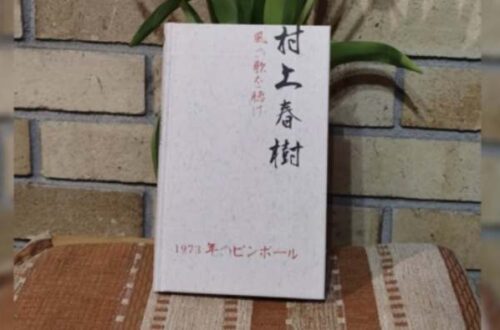 村上春樹
風の歌を聴け
1973年のピンボール